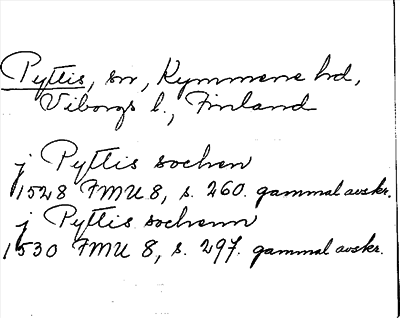 Pyttis, sn, Kymmene hd,
Viborgs l., Finland
j Pyttis sochen
1528 FMU 8, s. 260. gammal avskr.
j Pyttis sochenn
1530 FMU 8, s. 297. gammal avskr.